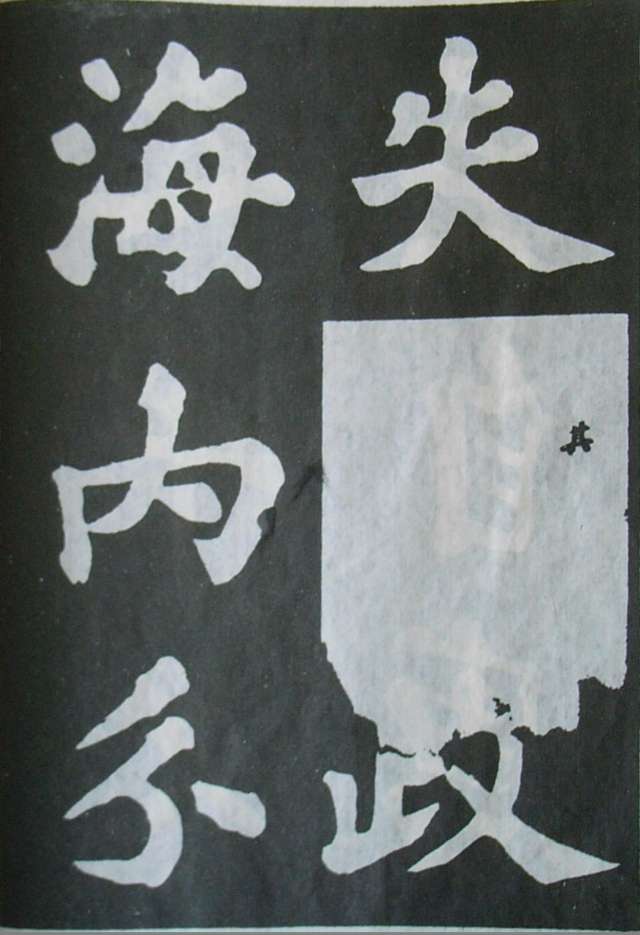 失其政
海内分